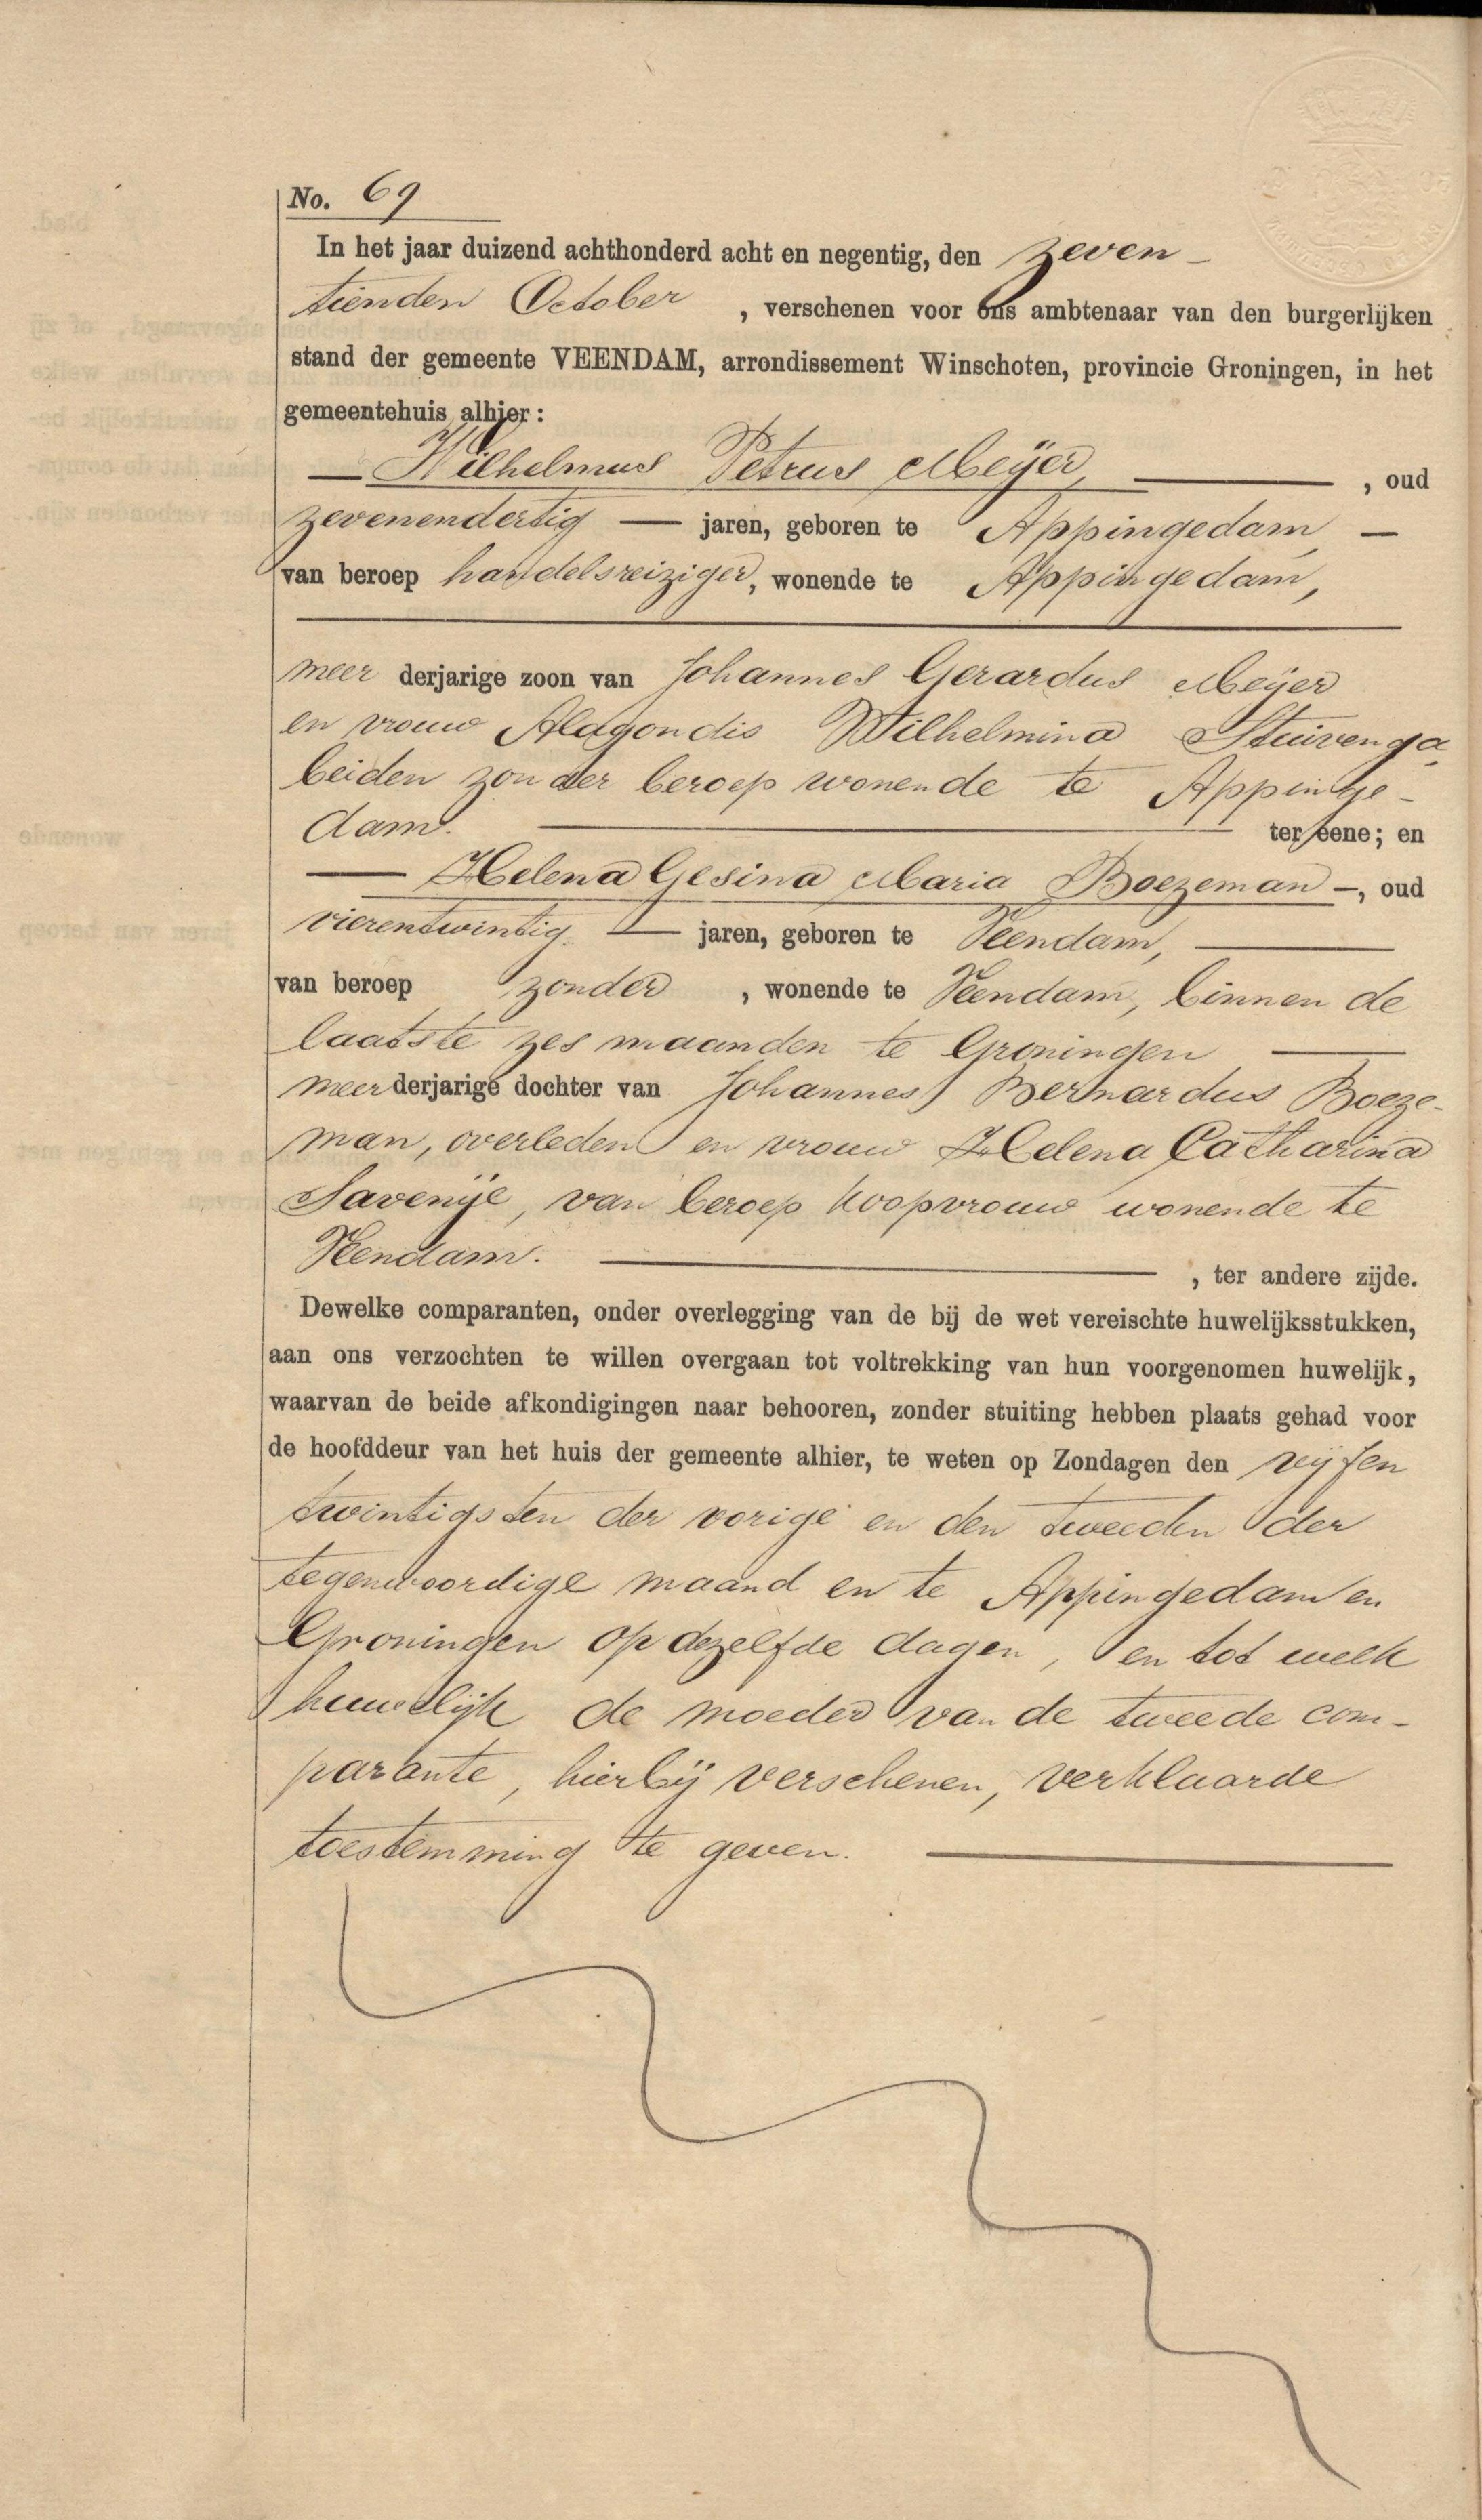 No. 69
In het jaar duizend achthonderd acht en negentig, den zeven-
tienden October, verschenen voor ons ambtenaar van den burgerlijken
stand der gemeente VEENDAM, arrondissement Winschoten, provincie Groningen, in het
gemeentehuis alhier:
— Wilhelmus Petrus Meijer, —, oud
zevenendertig — jaren, geboren te Appingedam, —
van beroep handelsreiziger, wonende te Appingedam,
meerderjarige zoon van Johannes Gerardus Meijer
en vrouw Alagondis Wilhelmina Stuivenga,
beiden zonder beroep wonende te Appinge-
dam. — ter eene; en
— Helena Gesina Maria Boezeman —, oud
vierentwintig — jaren, geboren te Veendam, —
van beroep zonder, wonende te Veendam, binnen de
laatste zes maanden te Groningen —
meerderjarige dochter van Johannes Bernardus Boeze-
man, overleden en vrouw Helena Catharina
Savenije, van beroep koopvrouw wonende te
Veendam. —, ter andere zijde.
Dewelke comparanten, onder overlegging van de bij de wet vereischte huwelijksstukken,
aan ons verzochten te willen overgaan tot voltrekking van hun voorgenomen huwelijk,
waarvan de beide afkondigingen naar behooren, zonder stuiting hebben plaats gehad voor
de hoofddeur van het huis der gemeente alhier, te weten op Zondagen den vijfen
twintigsten der vorige en den tweeden der
tegenwoordige maand en te Appingedam en
Groningen op dezelfde dagen, en tot welk
huwelijk de moeder van de tweede com-
parante, hierbij verschenen, verklaarde
toestemming te geven. —